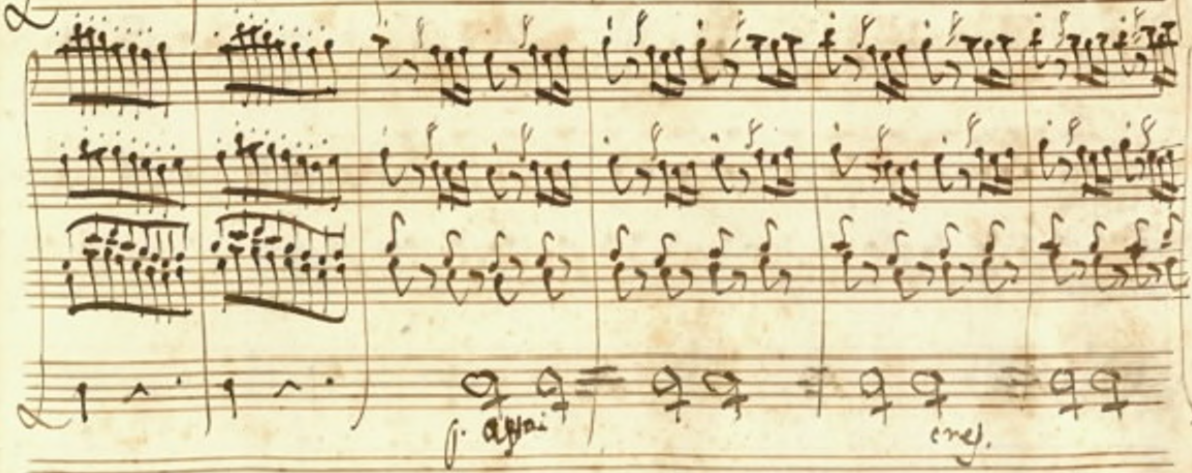 p. assai cres.